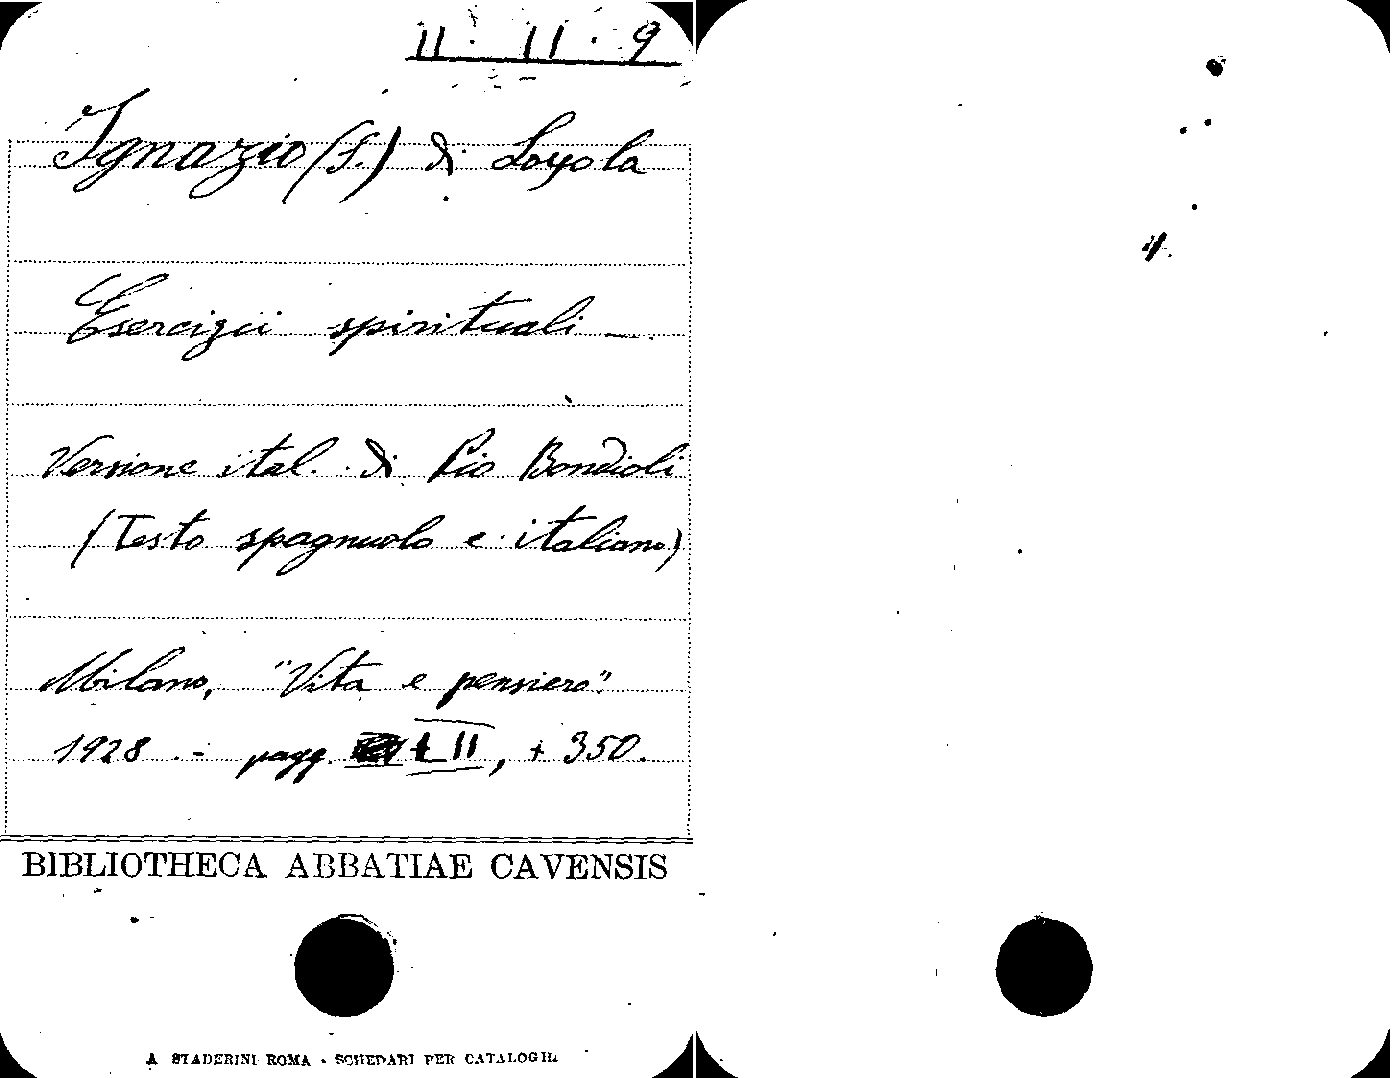 II. II. 9
Ignazio (S.) di Loyola
Esercizii spirituali —
Versione ital. di Pio Bondioli
(Testo spagnuolo e italiano)
Milano, "Vita e pensiero".
1928 . - pagg. LII, + 350.
BIBLIOTHECA ABBATIAE CAVENSIS
A. STADERINI ROMA - SCHEDARI PER CATALOGHI